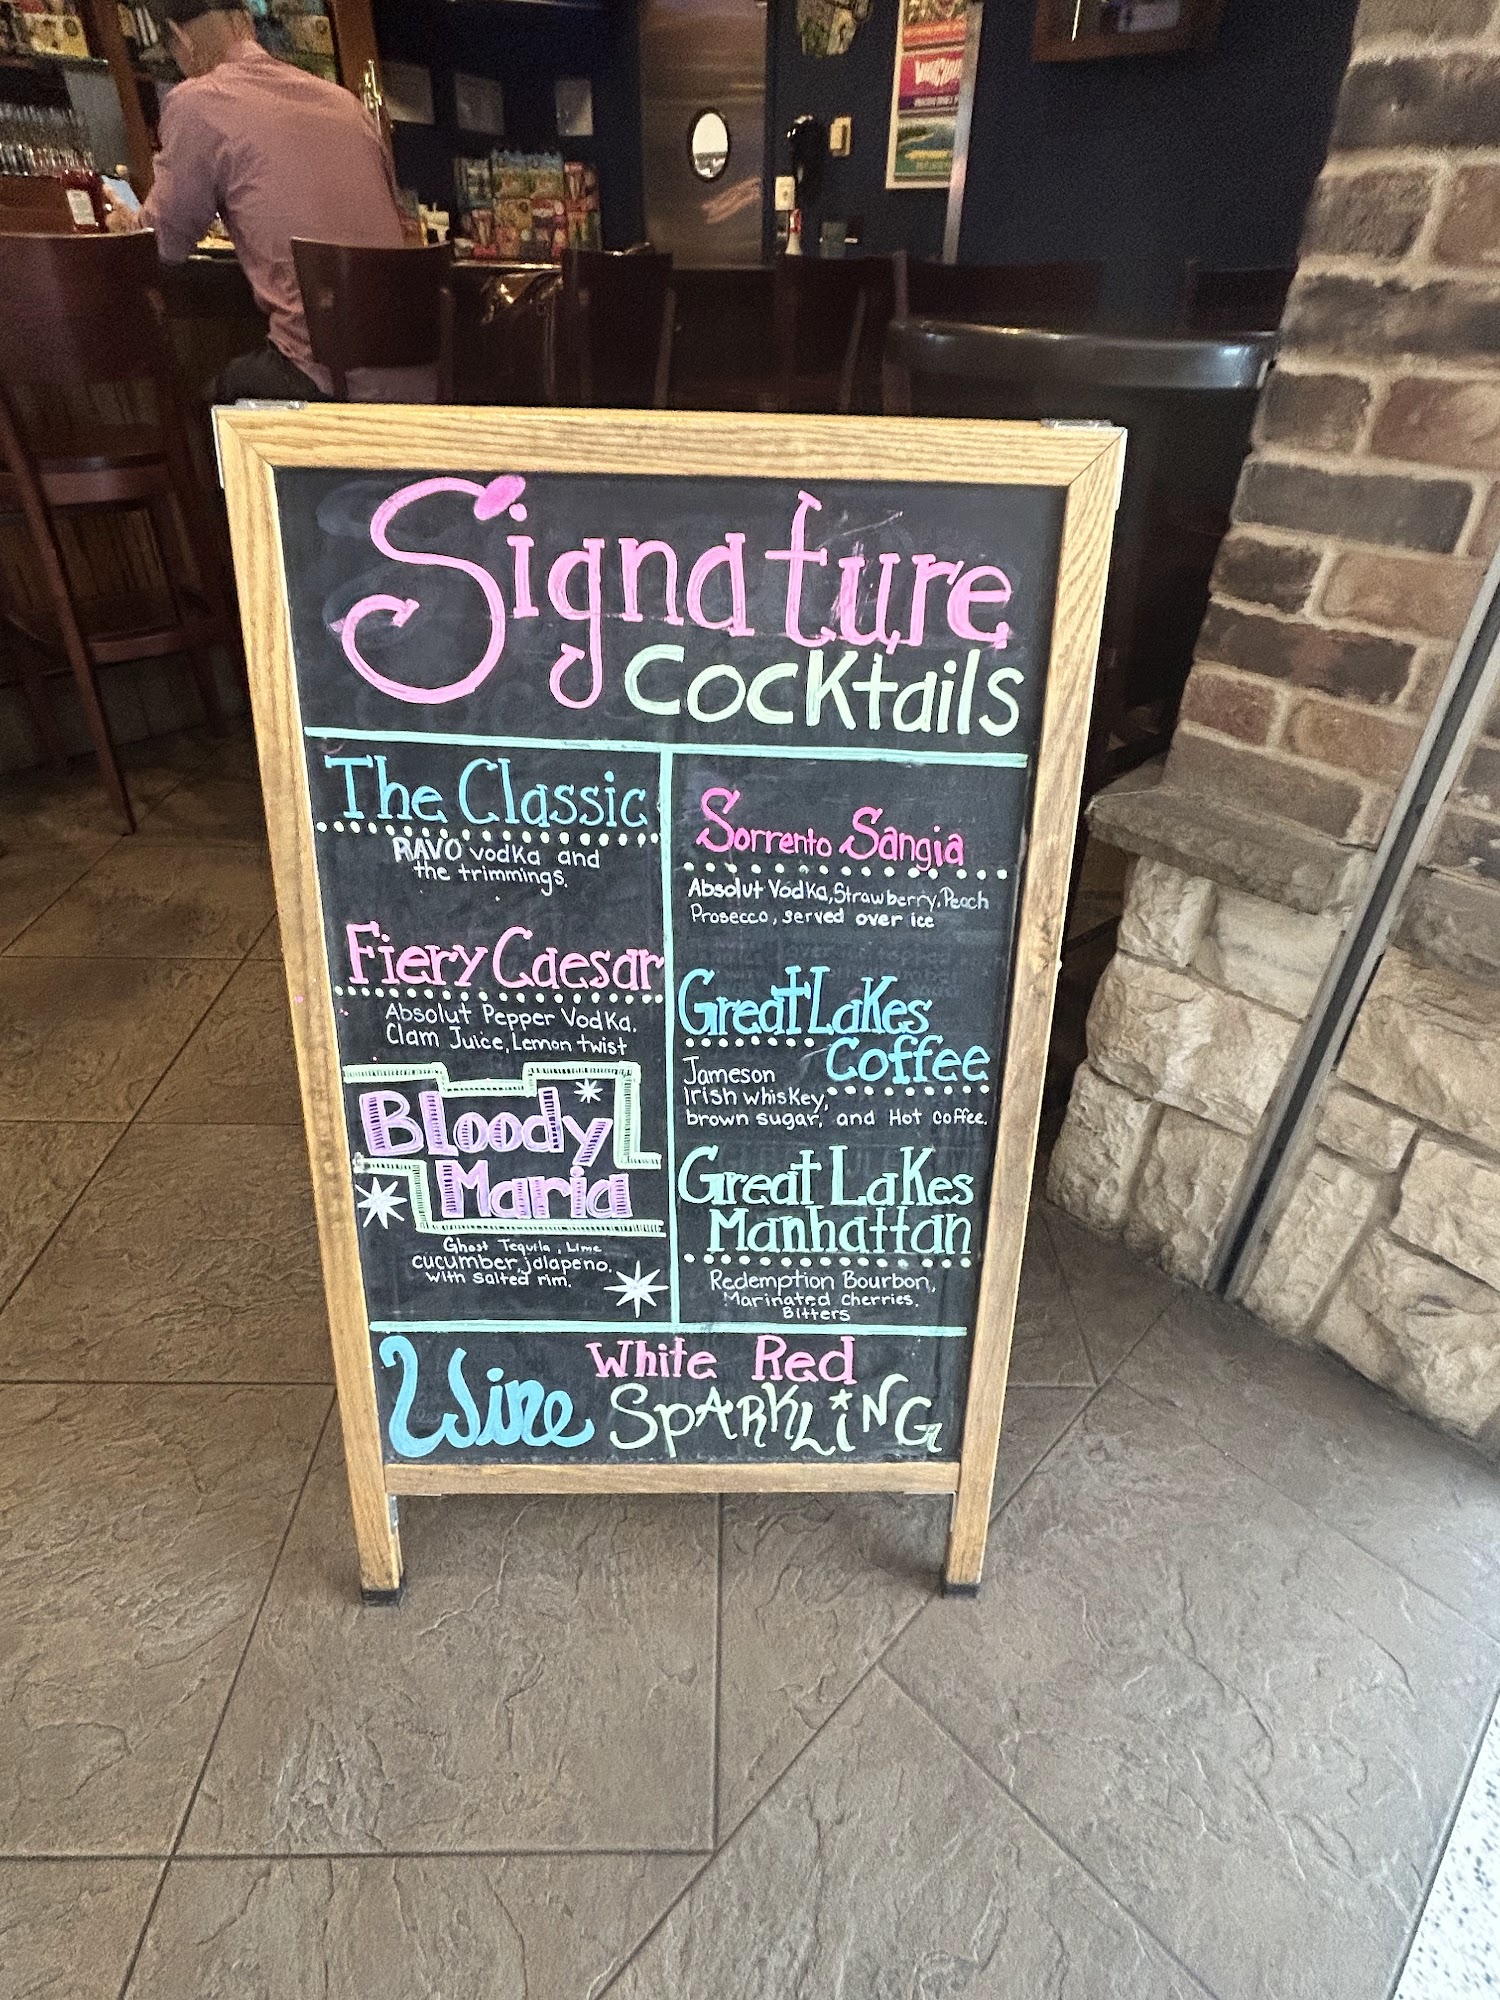 Signature
Cocktails
The Classic
RAVO vodka and
the trimmings.
Fiery Caesar
Absolut Pepper Vodka.
Clam Juice, Lemon twist
Bloody
Maria
Ghost Tequila, Lime
cucumber, jalapeno.
with salted rim.
Sorrento Sangia
Absolut Vodka, Strawberry, Peach
Prosecco, served over ice
Great Lakes
Coffee
Jameson
Irish whiskey,
brown sugar, and Hot coffee.
Great Lakes
Manhattan
Redemption Bourbon,
Marinated Cherries.
Bitters
Wine White Red
Sparkling